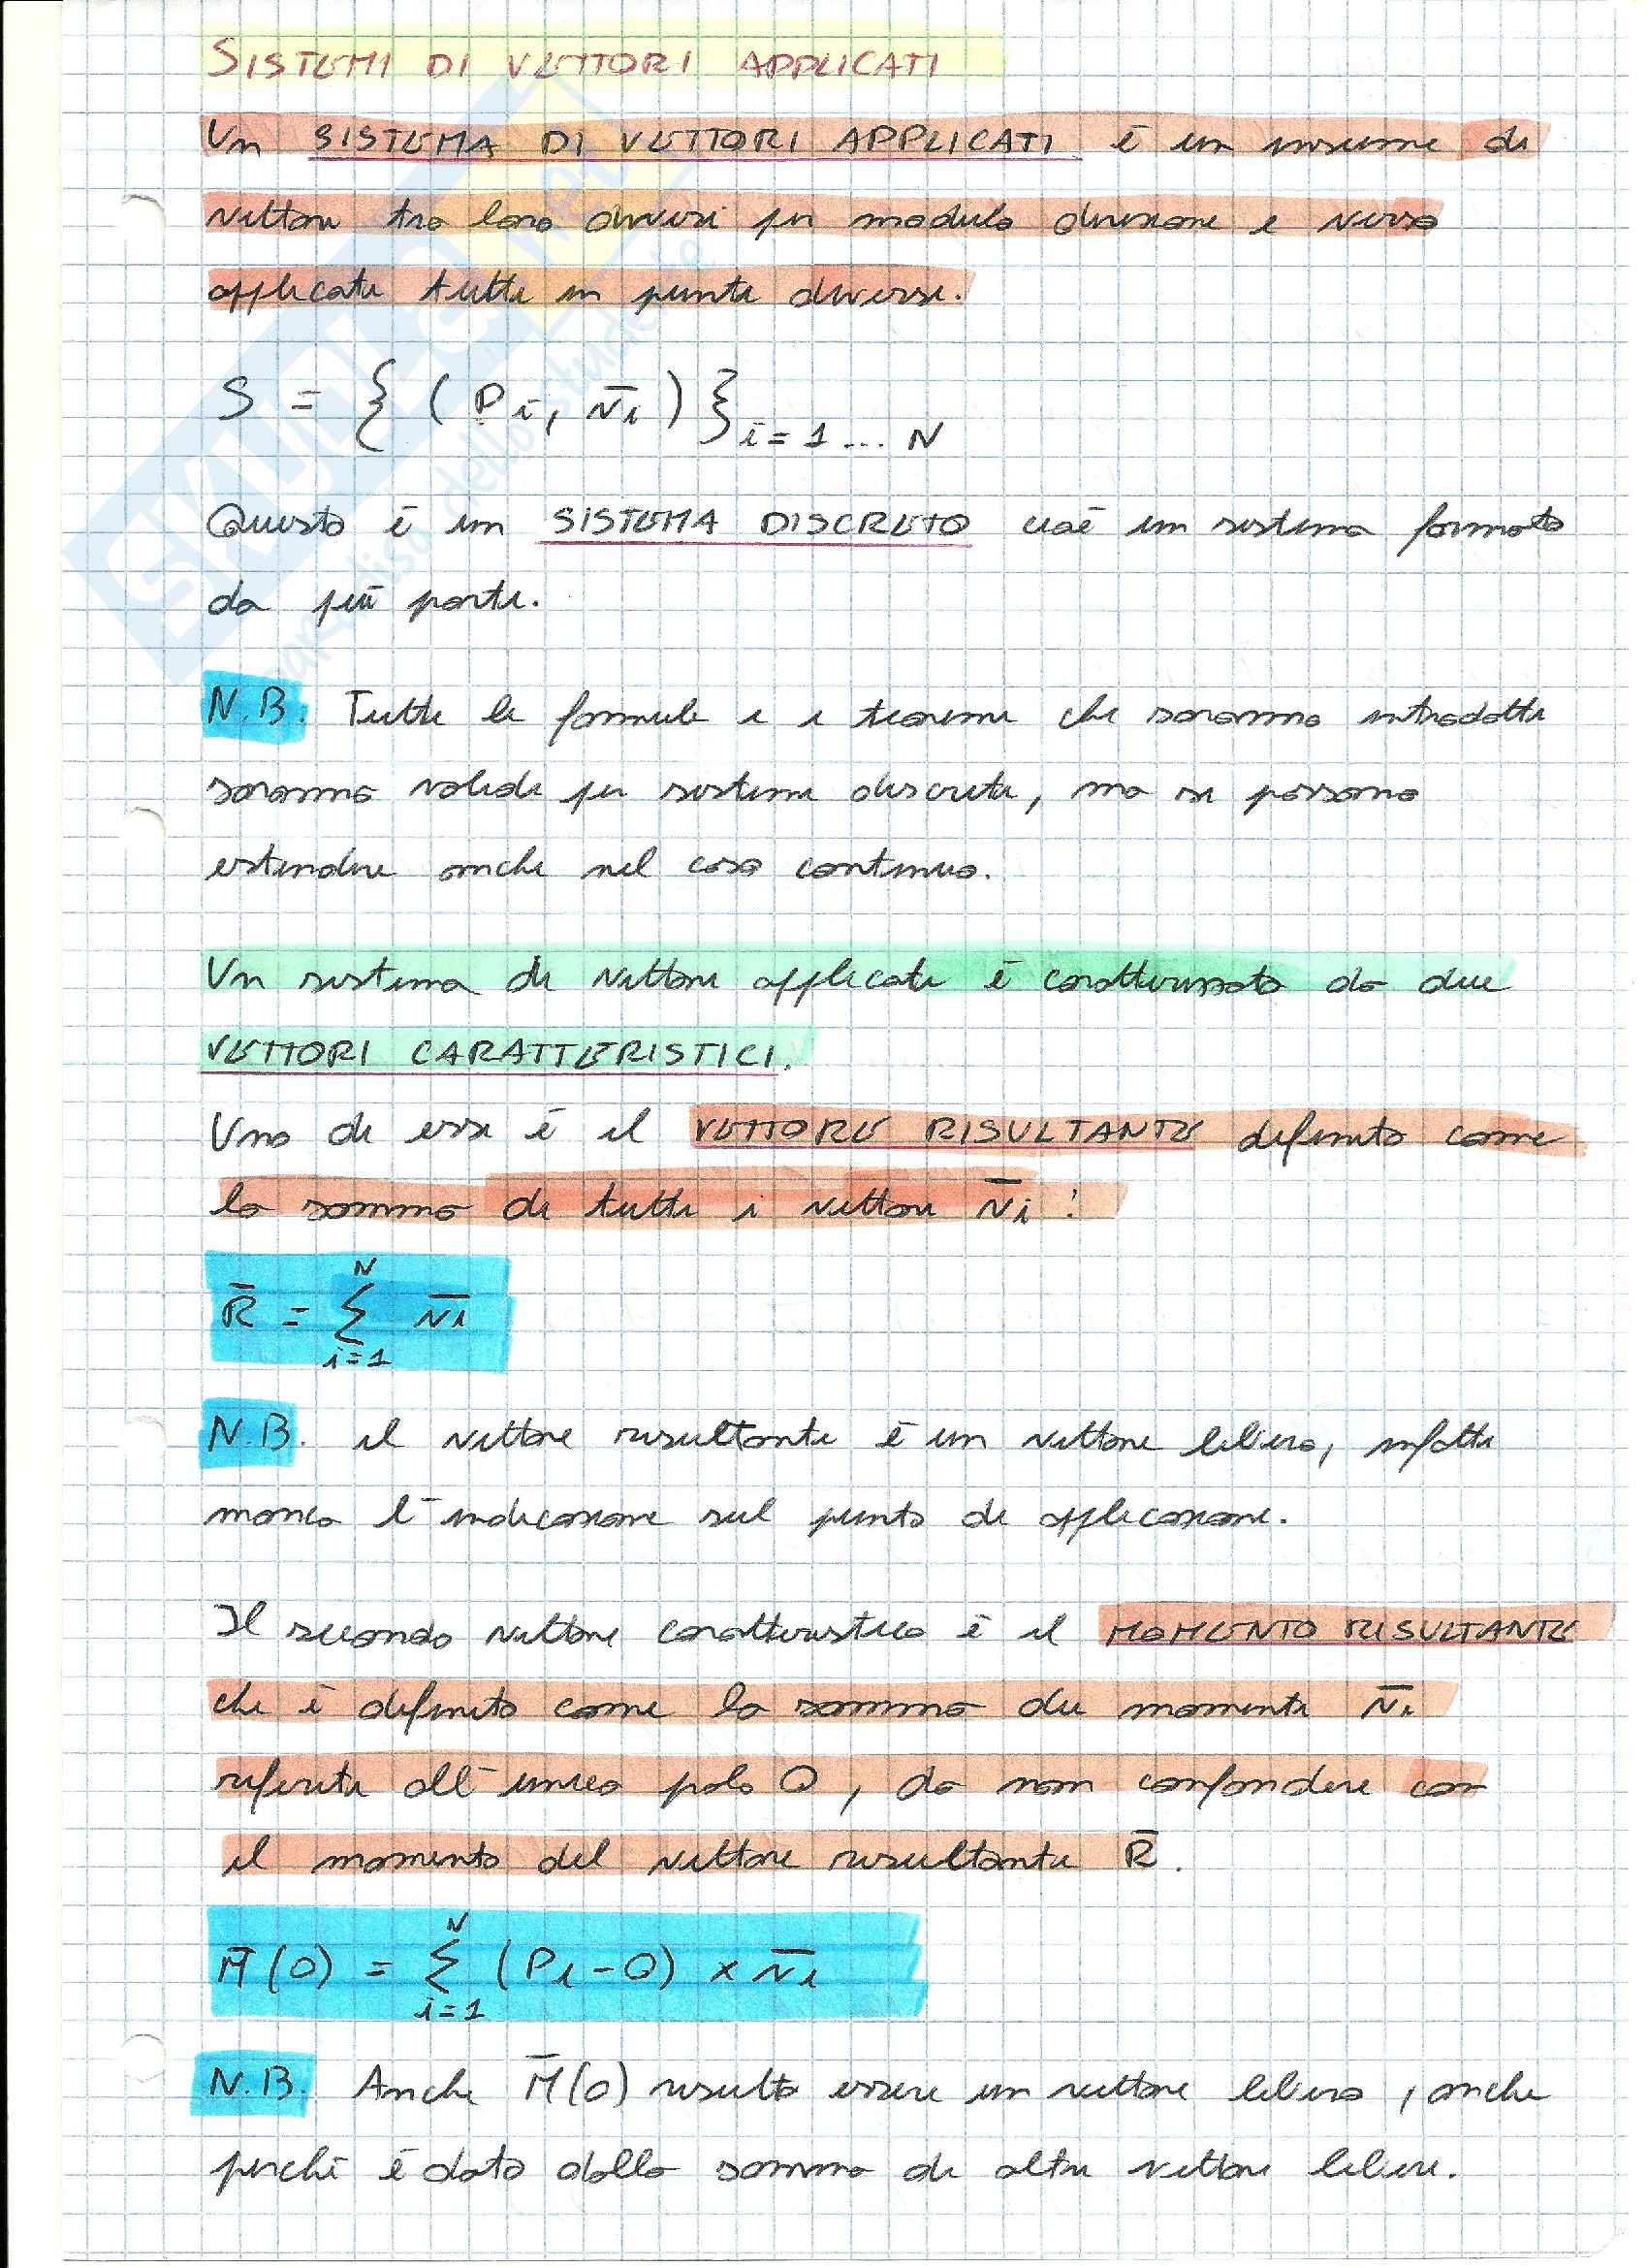 SISTEMI DI VETTORI APPLICATI
Un SISTEMA DI VETTORI APPLICATI è un insieme di
vettori tra loro diversi per modulo direzione e verso
applicati tutti in punti diversi.
S = { (Pi, v̄i) } i=1 ... N
Questo è un SISTEMA DISCRETO cioè un sistema formato
da più parti.
N.B. Tutte le formule e i teoremi che saranno introdotti
saranno validi per sistemi discreti, ma si possono
estendere anche nel caso continuo.
Un sistema di vettori applicati è caratterizzato da due
VETTORI CARATTERISTICI.
Uno di essi è il VETTORE RISULTANTE definito come
la somma di tutti i vettori v̄i:
R̄ = Σ i=1 N v̄i
N.B. il vettore risultante è un vettore libero, infatti
manca l'indicazione sul punto di applicazione.
Il secondo vettore caratteristico è il MOMENTO RISULTANTE
che è definito come la somma dei momenti v̄i
riferiti all'unico polo O, da non confondere con
il momento del vettore risultante R̄.
M̄(O) = Σ i=1 N (Pi-O) x v̄i
N.B. Anche M̄(O) risulta essere un vettore libero, anche
perchè è dato dalla somma di altri vettori liberi.